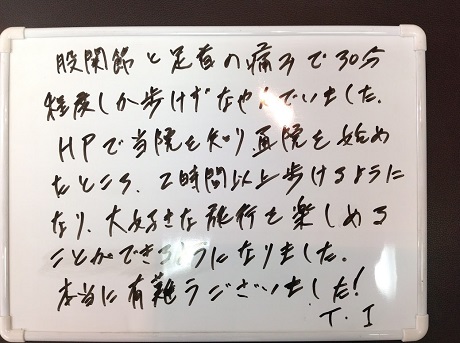 股関節と足首の痛みで30分
程度しか歩けずなやんでいました.
HPで当院を知り通院を始め
たところ、2時間以上歩けるように
なり、大好きな旅行を楽しめる
ことができるようになりました.
本当に有難うございました!
T.I